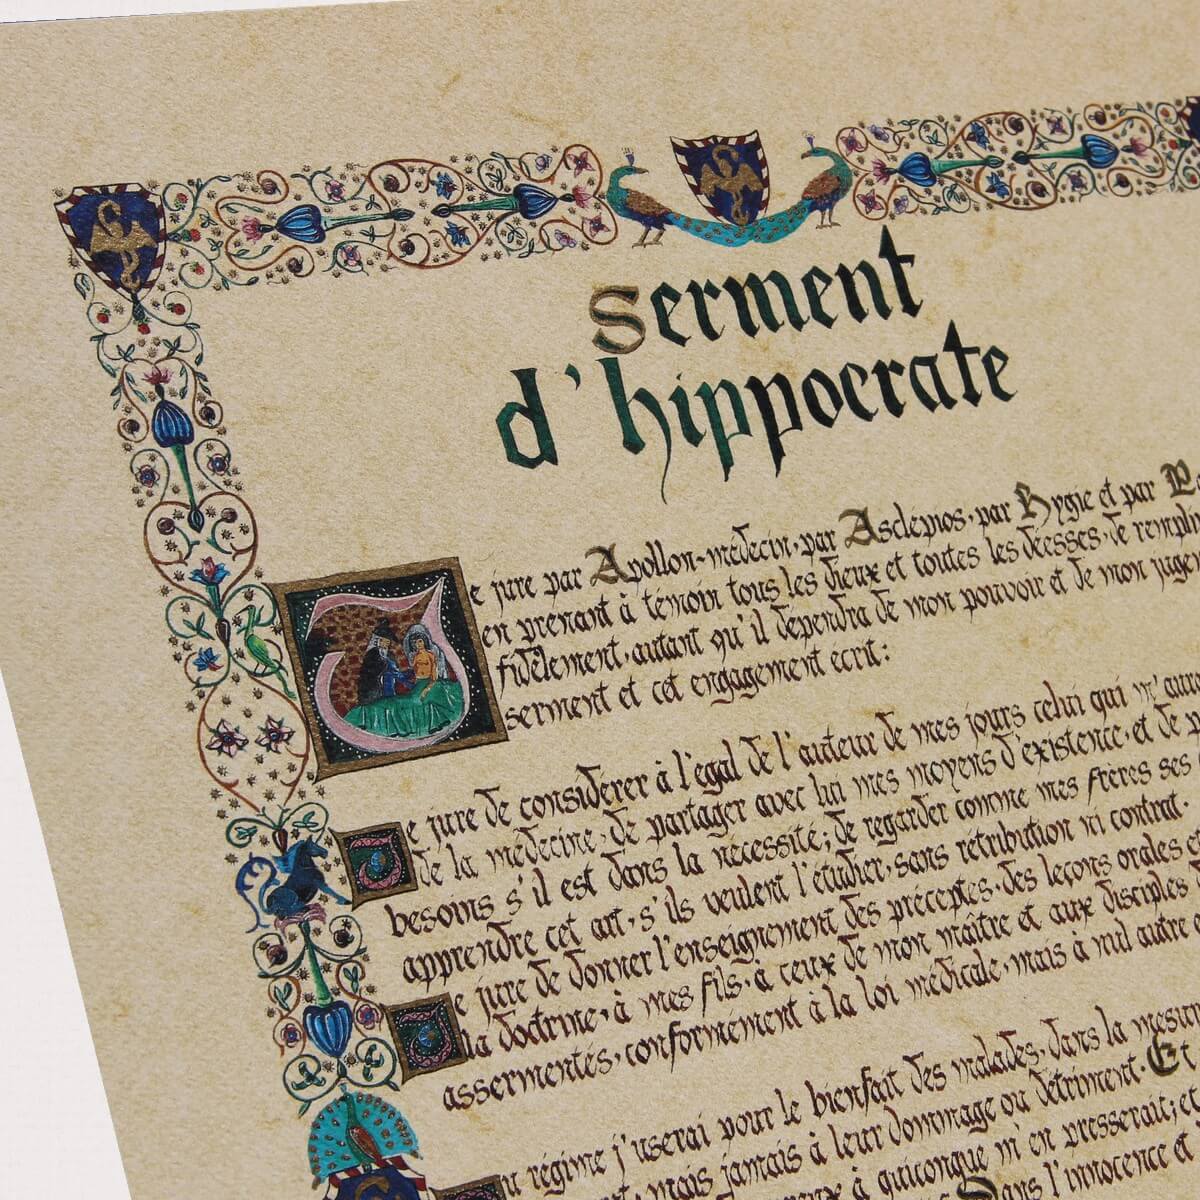 Serment
d'hippocrate
Je jure par Apollon-médecin, par Asclépios, par Hygie et par
en prenant à témoin tous les dieux et toutes les déesses, de rempli
fidèlement, autant qu'il dépendra de mon pouvoir et de mon jugem
serment et cet engagement écrit:
Je jure de considérer à l'égal de l'auteur de mes jours celui qui m'aura
de la médecine, de partager avec lui mes moyens d'existence, et de p
besoins s'il est dans la nécessité; de regarder comme mes frères ses
apprendre cet art, s'ils veulent l'étudier, sans rétribution ni contrat.
Je jure de donner l'enseignement des préceptes, des leçons orales et
la doctrine, à mes fils, à ceux de mon maître et aux disciples
assermentés, conformément à la loi médicale, mais à nul autre
Du régime j'userai pour le bienfait des malades, dans la mesure
mais jamais à leur dommage ou détriment. Et
à quiconque m'en presserait; et
Dans l'innocence et